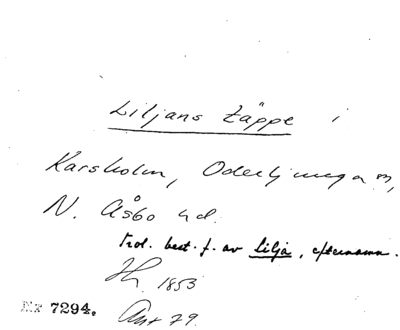 Liljans täppe i
Karsholm, Oderljunga sn,
N. Åsbo hd.
Trol. best. f. av Lilja, efternamn.
1853
Nr 7294. Ant 79.